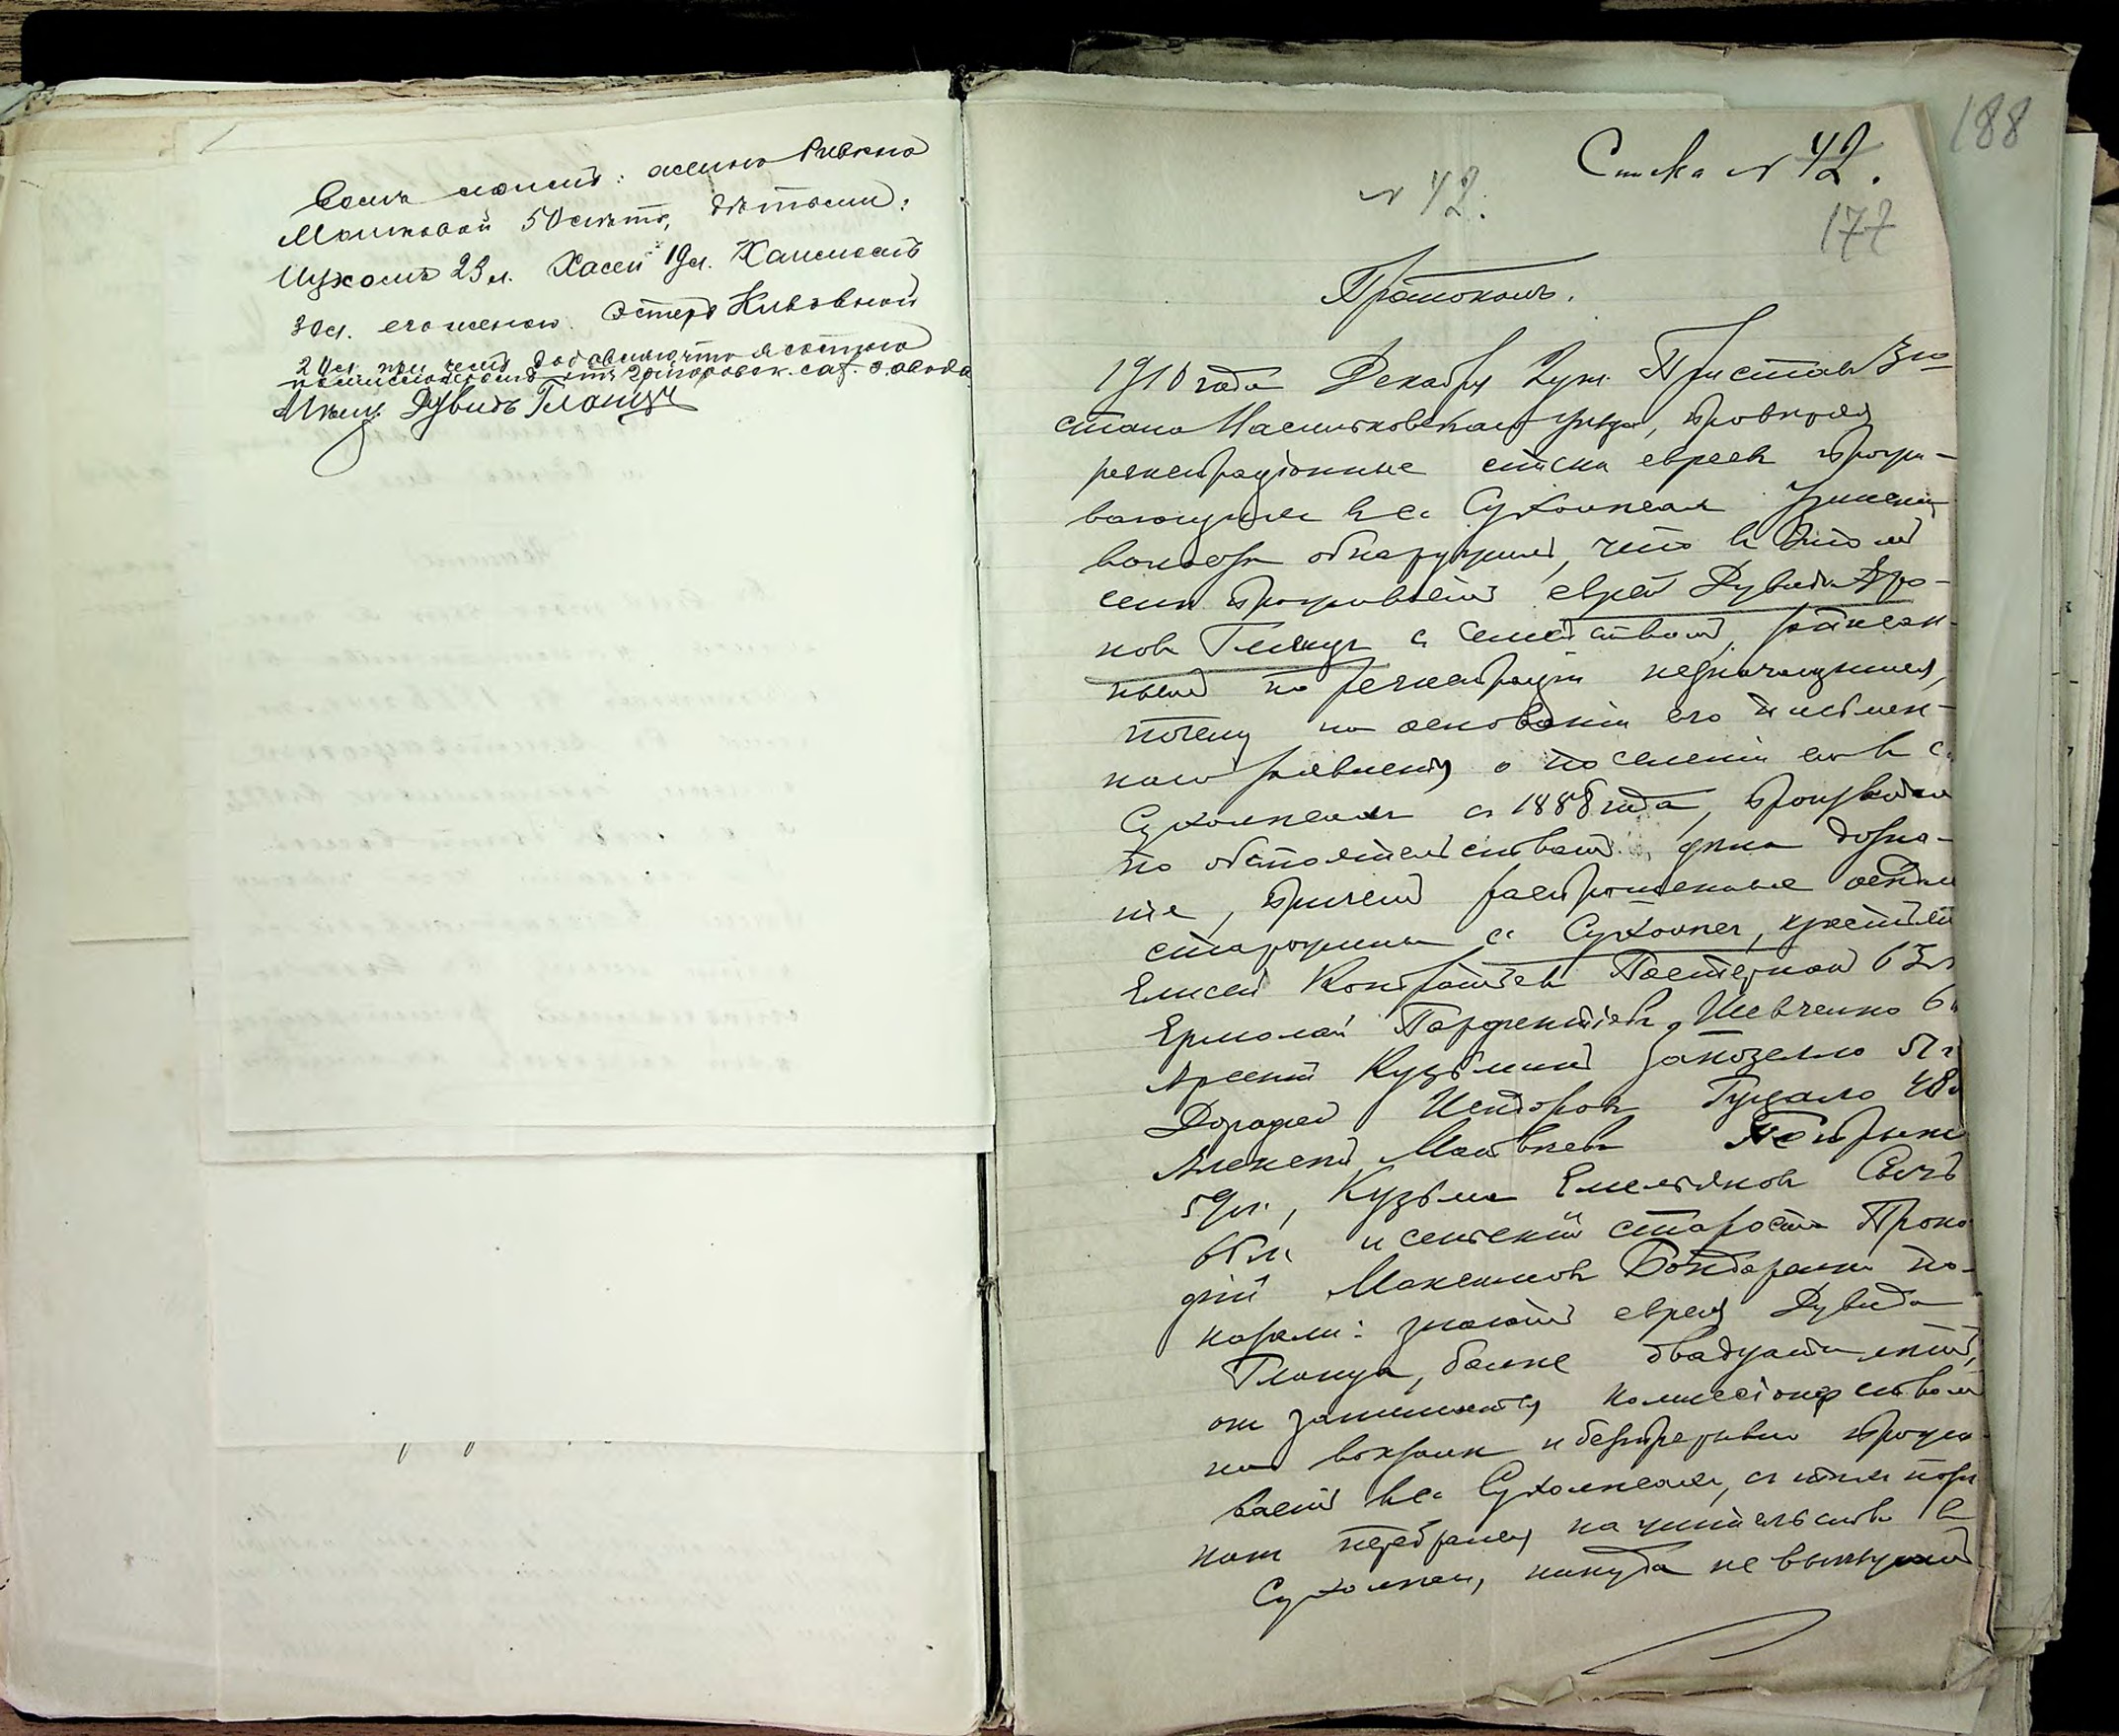 семьи моей: жены Ривки
Мошковой 50 летъ, детьми:
Шухомъ 23 л. Хасей 19 л. Хаимомъ
30 л. его женою Эстеръ Кивовной
20 л. при чемъ добавляю что я состою
комиссионеромъ отъ Григоровск. сах. завода
Мещ. Дувидъ Глонцъ
188
Ст-ка № 42.
№ 42.
177
Протоколъ.
1910 года Декабря дня. Приставъ 3 го
стана Васильковскаго уезда, проверяя
регистраціонные списки евреевъ прожи-
вающихъ въ с. Сухолесахъ
волости обнаружилъ, что въ этомъ
селе проживаетъ еврей Дувидъ Аро-
новъ Глонцъ съ семействомъ,
по регистраціи незначущимся,
почему на основаніи его письмен-
наго заявленія о поселеніи его въ с.
Сухолесахъ съ 1888 года, произведено
по обстоятельствамъ дела дозна-
ніе, причемъ распрошенные
старожилы с. Сухолесъ, крестьяне
Елисей Кондратьевъ Пастернакъ 63 л
Ермолай Парфентіевъ Шевченко 6
Арсеній Кузьминъ 51 г
Дорофей Исидоровъ Гуцало 48 л
Алексей Матвеевъ
59 л., Кузьма Емельяновъ Сычъ
65 л. и сельскій староста Проко
фій Максимовъ Бондаренко по-
казали: знаютъ еврея Дувида
Глонца, более двадцати летъ,
онъ занимается комиссіонерствомъ
на вокзале и безпрерывно прожи-
ваетъ въ с. Сухолесахъ, съ техъ поръ
какъ перебрался на жительство въ
Сухолесы, никуда не выезжалъ